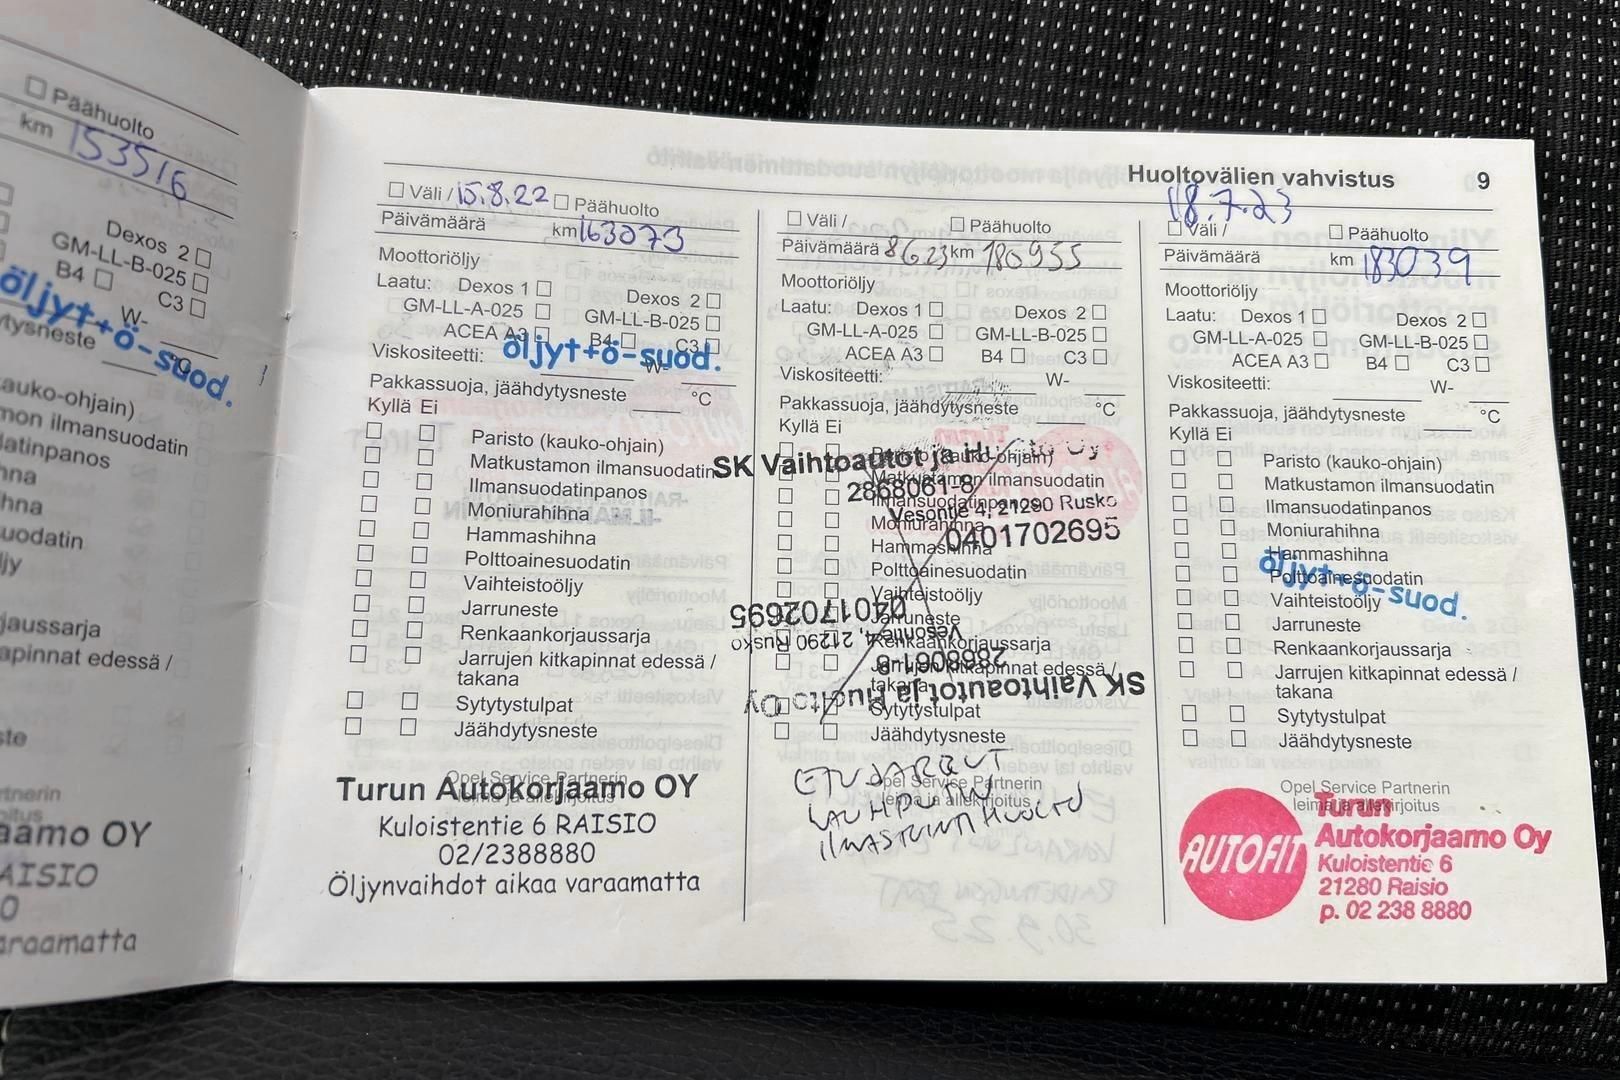 Päähuolto
km 153516
Dexos 2
GM-LL-B-025
B4
C3
öljyt+ö-suod.
W-
ytysneste
°C
auko-ohjain)
mon ilmansuodatin
datinpanos
hna
hna
uodatin
jy
jaussarja
apinnat edessä /
ste
rtnerin
oitus
aamo OY
AISIO
0
araamatta
Huoltovälien vahvistus 9
Väli / 15.8.22 Päähuolto
Päivämäärä km 163073
Moottoriöljy
Laatu: Dexos 1 Dexos 2
GM-LL-A-025 GM-LL-B-025
ACEA A3 B4 C3
öljyt+ö-suod.
Viskositeetti: W-
Pakkassuoja, jäähdytysneste °C
Kyllä Ei
Paristo (kauko-ohjain)
Matkustamon ilmansuodatin
Ilmansuodatinpanos
Moniurahihna
Hammashihna
Polttoainesuodatin
Vaihteistoöljy
Jarruneste
Renkaankorjaussarja
Jarrujen kitkapinnat edessä /
takana
Sytytystulpat
Jäähdytysneste
Opel Service Partnerin
leima ja allekirjoitus
Turun Autokorjaamo OY
Kuloistentie 6 RAISIO
02/2388880
Öljynvaihdot aikaa varaamatta
Väli / Päähuolto
Päivämäärä 8 6 23 km 180955
Moottoriöljy
Laatu: Dexos 1 Dexos 2
GM-LL-A-025 GM-LL-B-025
ACEA A3 B4 C3
Viskositeetti: W-
Pakkassuoja, jäähdytysneste °C
Kyllä Ei
Paristo (kauko-ohjain)
SK Vaihtoautot ja Huolto Oy
Matkustamon ilmansuodatin
2868061-8
Ilmansuodatinpanos
Vesontie 4, 21290 Rusko
Moniurahihna
0401702695
Hammashihna
Polttoainesuodatin
Vaihteistoöljy
0401702695
Jarruneste
Vesontie 4, 21290 Rusko
Renkaankorjaussarja
2868061-8
Jarrujen kitkapinnat edessä /
takana
SK Vaihtoautot ja Huolto Oy
Sytytystulpat
Jäähdytysneste
Opel Service Partnerin
leima ja allekirjoitus
ETUJARRUT
ILMASTOINTI HUOLTO
18.7.23
Väli / Päähuolto
Päivämäärä km 183039
Moottoriöljy
Laatu: Dexos 1 Dexos 2
GM-LL-A-025 GM-LL-B-025
ACEA A3 B4 C3
Viskositeetti: W-
Pakkassuoja, jäähdytysneste °C
Kyllä Ei
Paristo (kauko-ohjain)
Matkustamon ilmansuodatin
Ilmansuodatinpanos
Moniurahihna
Hammashihna
öljyt+ö-suod.
Polttoainesuodatin
Vaihteistoöljy
Jarruneste
Renkaankorjaussarja
Jarrujen kitkapinnat edessä /
takana
Sytytystulpat
Jäähdytysneste
Opel Service Partnerin
leima ja allekirjoitus
AUTOFIT
Turun
Autokorjaamo Oy
Kuloistentie 6
21280 Raisio
p. 02 238 8880